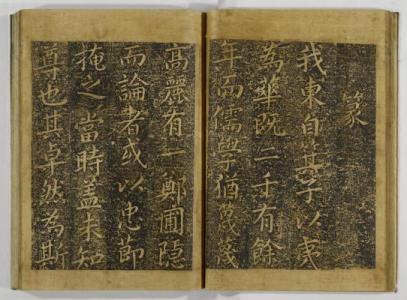 篆
我東自箕子以夷
為華既二千有餘
年而儒學猶蔑蔑
髙麗有一鄭圃隐
而論者或以忠節
掩之當時盖未知
尊也其卓然為斯